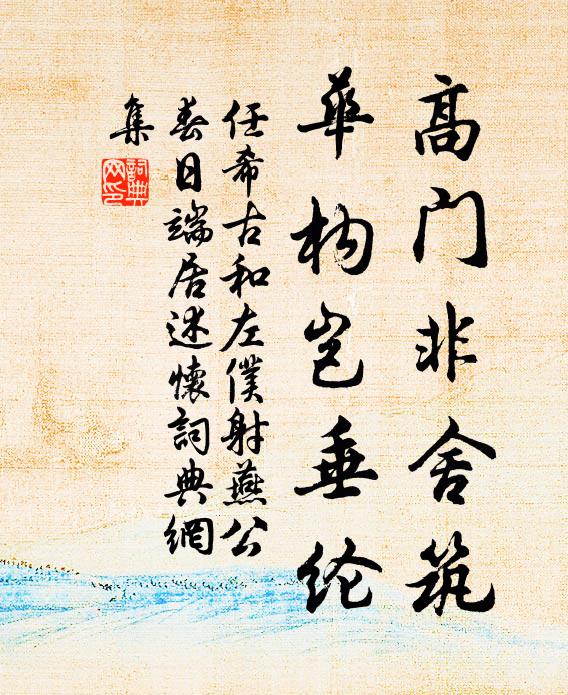 高门非舍筑
华构岂垂纶
任希古和左僕射燕公
春日端居述懷詞典網
集
詞典
网印